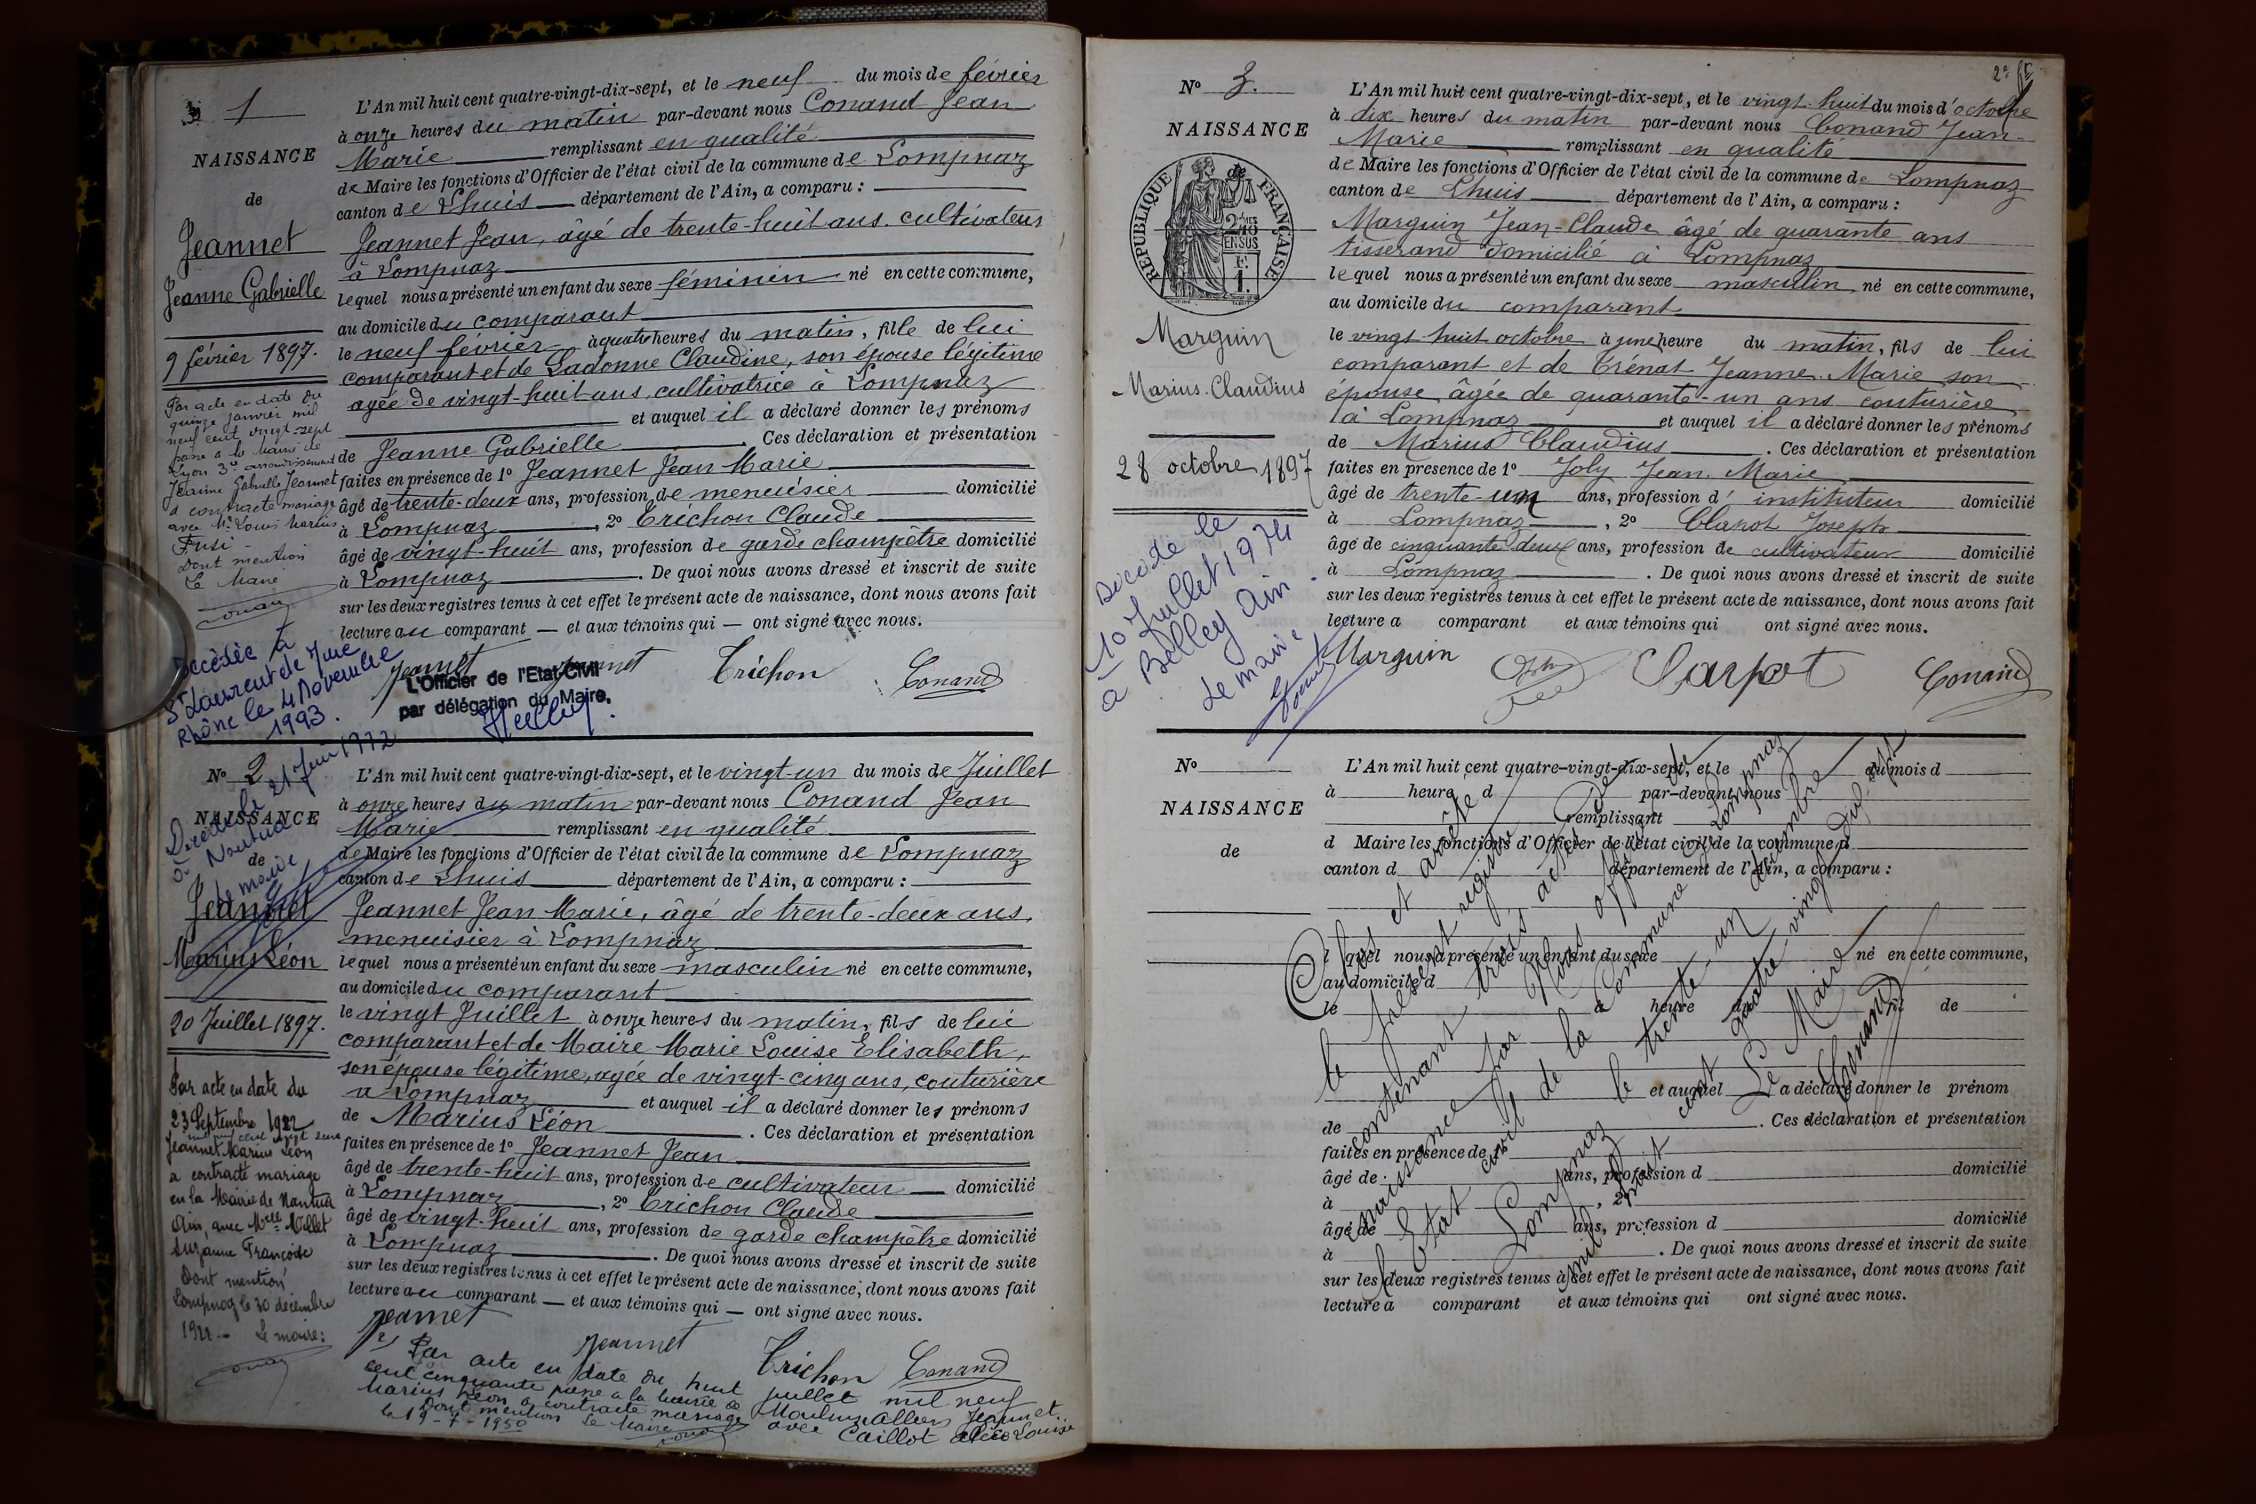 1
NAISSANCE
de
Jeannet
Jeanne Gabrielle
9 février 1897.
Par acte en date du
quinze janvier mil
neuf cent vingt-sept
passé à la Mairie de
Lyon 3e arrondissement
Jeanne Gabrielle Jeannet
a contracté mariage
avec Mr Louis Marius
Fusi
Dont mention
Le Maire
Conand
Décédée à
St Laurent de Mure
Rhône le 4 Novembre
1993.
L'An mil huit cent quatre-vingt-dix-sept, et le neuf du mois de février
à onze heures du matin par-devant nous Conand Jean
Marie remplissant en qualité
de Maire les fonctions d'Officier de l'état civil de la commune de Lompnaz
canton de Lhuis département de l'Ain, a comparu :
Jeannet Jean, âgé de trente-huit ans. cultivateur
à Lompnaz
lequel nous a présenté un enfant du sexe féminin né en cette commune,
au domicile du comparant
le neuf fevrier à quatre heures du matin, fille de lui
comparant et de Ladonne Claudine, son épouse légitime
agée de vingt-huit ans, cultivatrice à Lompnaz
et auquel il a déclaré donner les prénoms
de Jeanne Gabrielle . Ces déclaration et présentation
faites en présence de 1º Jeannet Jean Marie
âgé de trente-deux ans, profession de menuisier domicilié
à Lompnaz , 2º Trichon Claude
âgé de vingt-huit ans, profession de garde champêtre domicilié
à Lompnaz . De quoi nous avons dressé et inscrit de suite
sur les deux registres tenus à cet effet le présent acte de naissance, dont nous avons fait
lecture au comparant — et aux témoins qui — ont signé avec nous.
Jeannet Jeannet Trichon Conand
L'Officier de l'Etat-Civil
par délégation du Maire,
Nº 2
NAISSANCE
de
Jeannet
Marius Léon
20 Juillet 1897.
Décédé le 21 Juin 1972
à Nantua
le maire
Par acte en date du
23 Septembre 1922
mil neuf cent vingt deux
Jeannet Marius Léon
a contracté mariage
en la Mairie de Nantua
Ain, avec Melle Millet
Suzanne Françoise
Dont mention
Lompnaz le 30 décembre
1922 – Le maire:
Conand
L'An mil huit cent quatre-vingt-dix-sept, et le vingt-un du mois de Juillet
à onze heures du matin par-devant nous Conand Jean
Marie remplissant en qualité
de Maire les fonctions d'Officier de l'état civil de la commune de Lompnaz
canton de Lhuis département de l'Ain, a comparu :
Jeannet Jean Marie, âgé de trente-deux ans,
menuisier à Lompnaz
lequel nous a présenté un enfant du sexe masculin né en cette commune,
au domicile du comparant
le vingt Juillet à onze heures du matin, fils de lui
comparant et de Maire Marie Louise Elisabeth,
son épouse légitime, agée de vingt-cinq ans, couturière
à Lompnaz et auquel il a déclaré donner les prénoms
de Marius Léon . Ces déclaration et présentation
faites en présence de 1º Jeannet Jean
âgé de trente-huit ans, profession de cultivateur domicilié
à Lompnaz , 2º Trichon Claude
âgé de vingt-huit ans, profession de garde champêtre domicilié
à Lompnaz . De quoi nous avons dressé et inscrit de suite
sur les deux registres tenus à cet effet le présent acte de naissance, dont nous avons fait
lecture au comparant — et aux témoins qui — ont signé avec nous.
Jeannet Jeannet Trichon Conand
Par acte en date du huit juillet mil neuf
cent cinquante passé à la mairie de Moulins Allier Jeannet
Marius Léon a contracté mariage avec Caillot Alice Louise
Dont mention
le 19-7-1950 Le Maire
Conand
2e
Nº 3.
NAISSANCE
de
RÉPUBLIQUE FRANÇAISE
Marguin
Marius-Claudius
28 octobre 1897
Décédé le
10 Juillet 1974
à Belley Ain.
Le maire
L'An mil huit cent quatre-vingt-dix-sept, et le vingt-huit du mois d'octobre
à dix heures du matin par-devant nous Conand Jean-
Marie remplissant en qualité
de Maire les fonctions d'Officier de l'état civil de la commune de Lompnaz
canton de Lhuis département de l'Ain, a comparu :
Marguin Jean-Claude âgé de quarante ans
tisserand domicilié à Lompnaz
lequel nous a présenté un enfant du sexe masculin né en cette commune,
au domicile du comparant
le vingt-huit octobre à une heure du matin, fils de lui
comparant et de Trénat Jeanne-Marie son
épouse âgée de quarante-un ans couturière
à Lompnaz et auquel il a déclaré donner les prénoms
de Marius Claudius . Ces déclaration et présentation
faites en présence de 1º Joly Jean-Marie
âgé de trente-un ans, profession d' instituteur domicilié
à Lompnaz , 2º Joseph
âgé de cinquante-deux ans, profession de cultivateur domicilié
à Lompnaz . De quoi nous avons dressé et inscrit de suite
sur les deux registres tenus à cet effet le présent acte de naissance, dont nous avons fait
lecture a comparant et aux témoins qui ont signé avec nous.
Marguin Conand
Nº
NAISSANCE
de
L'An mil huit cent quatre-vingt-dix-sept, et le du mois d
à heure d par-devant nous
remplissant
d Maire les fonctions d'Officier de l'état civil de la commune d
canton d département de l'Ain, a comparu :
l quel nous a présenté un enfant du sexe né en cette commune,
au domicile d
le à heure du fil de
et auquel a déclaré donner le prénom
de . Ces déclaration et présentation
faites en présence de 1º
âgé de ans, profession d domicilié
à , 2º
âgé de ans, profession d domicilié
à . De quoi nous avons dressé et inscrit de suite
sur les deux registres tenus à cet effet le présent acte de naissance, dont nous avons fait
lecture a comparant et aux témoins qui ont signé avec nous.
Clos et arrêté
le présent registre
contenant trois actes de
naissance par Nous officier de
l'Etat civil de la Commune de Lompnaz
Lompnaz le trente-un décembre
mil huit cent quatre-vingt-dix-sept
Le Maire
Conand